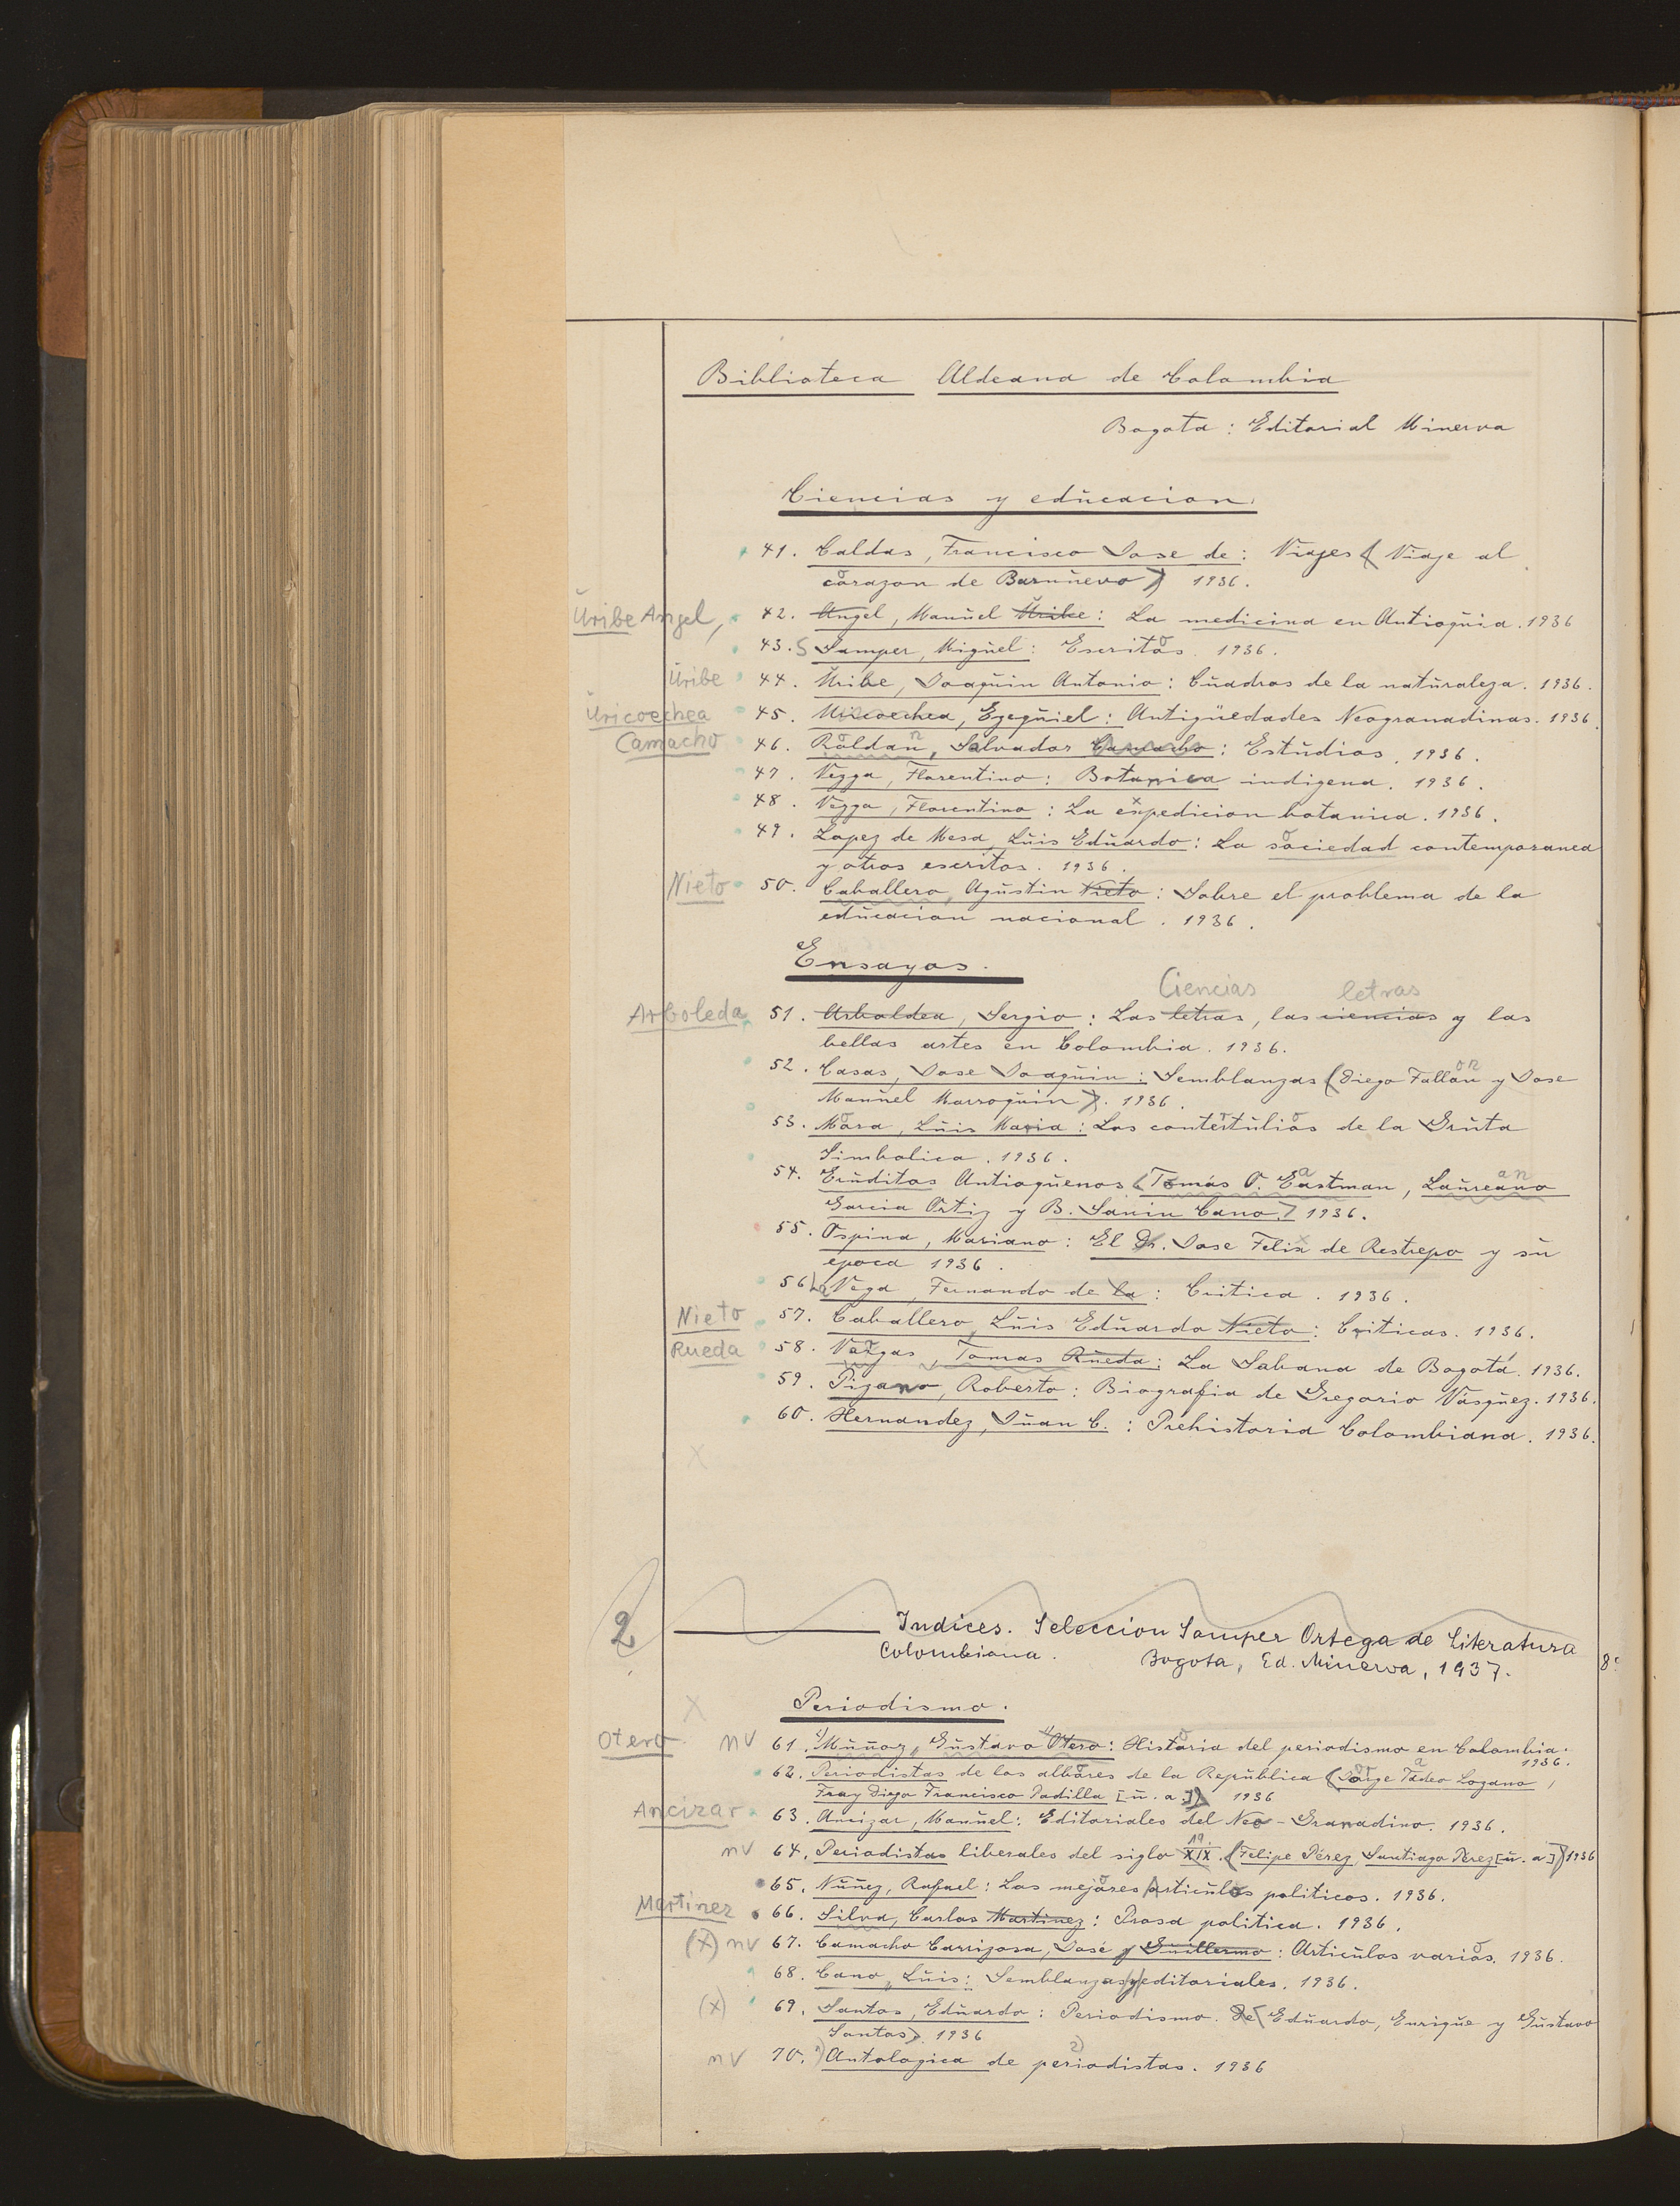 Biblioteca Aldeana de Colombia
Bogota : Editorial Minerva
Ciencias y educacion.
41. Caldas, Francisco Jose de : Viajes ( Viaje al
corazon de Barnuevo ) 1936.
Uribe Angel, 42. Angel, Manuel Uribe : La medicina en Antioquia. 1936
43. S Samper, Miguel : Escritos. 1936.
Uribe 44. Uribe, Joaquin Antonio : Cuadros de la naturaleza. 1936.
Uricoechea 45. Uricoechea, Ezequiel : Antigüedades Neogranadinas. 1936.
Camacho 46. Roldan, Salvador Camacho : Estudios. 1936.
47. Vezga, Florentino : Botanica indigena. 1936.
48. Vezga, Florentino : La expedicion botanica. 1936.
49. Lopez de Mesa, Luis Eduardo : La sociedad contemporanea
y otros escritos. 1936.
Nieto 50. Caballero, Agustin Nieto : Sobre el problema de la
educacion nacional. 1936.
Ensayos.
Ciencias letras
Arboleda 51. Arboldea, Sergio : Las letras, las ciencias y las
bellas artes en Colombia. 1936.
52. Casas, Jose Joaquin : Semblanzas (Diego Fallon y Jose
Manuel Marroquin). 1936.
53. Mora, Luis Maria : Los contertulios de la Gruta
Simbolica. 1936.
54. Eruditos Antioquenos (Tomás O. Eastman, Laureano
Garcia Ortiz y B. Sanin Cano.) 1936.
55. Ospina, Mariano : El Dr. Jose Felix de Restrepo y su
epoca 1936.
56. La Vega, Fernando de la : Critica. 1936.
Nieto 57. Caballero, Luis Eduardo Nieto : Criticas. 1936.
Rueda 58. Vargas, Tomas Rueda : La Sabana de Bogotá. 1936.
59. Pizano, Roberto : Biografia de Gregorio Vásquez. 1936.
60. Hernandez, Juan C. : Prehistoria Colombiana. 1936.
2 Indices. Seleccion Samper Ortega de Literatura
Colombiana. Bogota, Ed. Minerva, 1937. 8°
Periodismo.
Otero nv 61. Muñoz, Gustavo Otero : Historia del periodismo en Colombia.
1936.
62. Periodistas de los albores de la Republica (Jorge Tadeo Lozano,
Fray Diego Francisco Padilla [u. a.]) 1936
Ancizar 63. Ancizar, Manuel : Editoriales del Neo-Granadino. 1936.
19.
nv 64. Periodistas liberales del siglo XIX. (Felipe Pérez, Santiago Pérez [u. a.]) 1936
65. Nuñez, Rafael : Los mejores articulos politicos. 1936.
Martinez 66. Silva, Carlos Martinez : Prosa politica. 1936.
(x) nv 67. Camacho Carrizosa, José y Guillermo : Articulos varios. 1936.
68. Cano, Luis : Semblanzas y editoriales. 1936.
(x) 69. Santos, Eduardo : Periodismo. De ( Eduardo, Enrique y Gustavo
Santos). 1936
nv 70. 1) Antologica de 2) periodistas. 1936